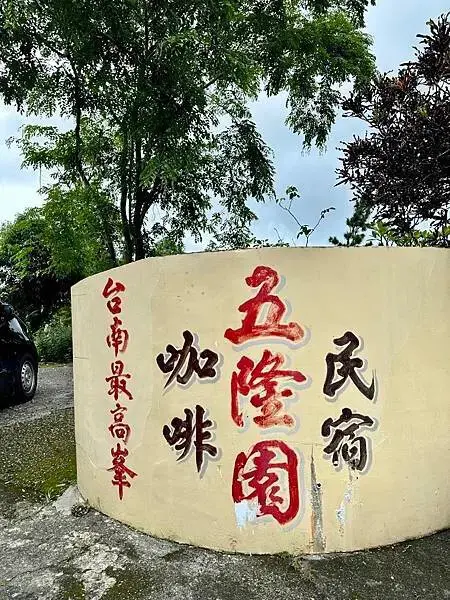 民宿
五隆園
咖啡
台南最高峯